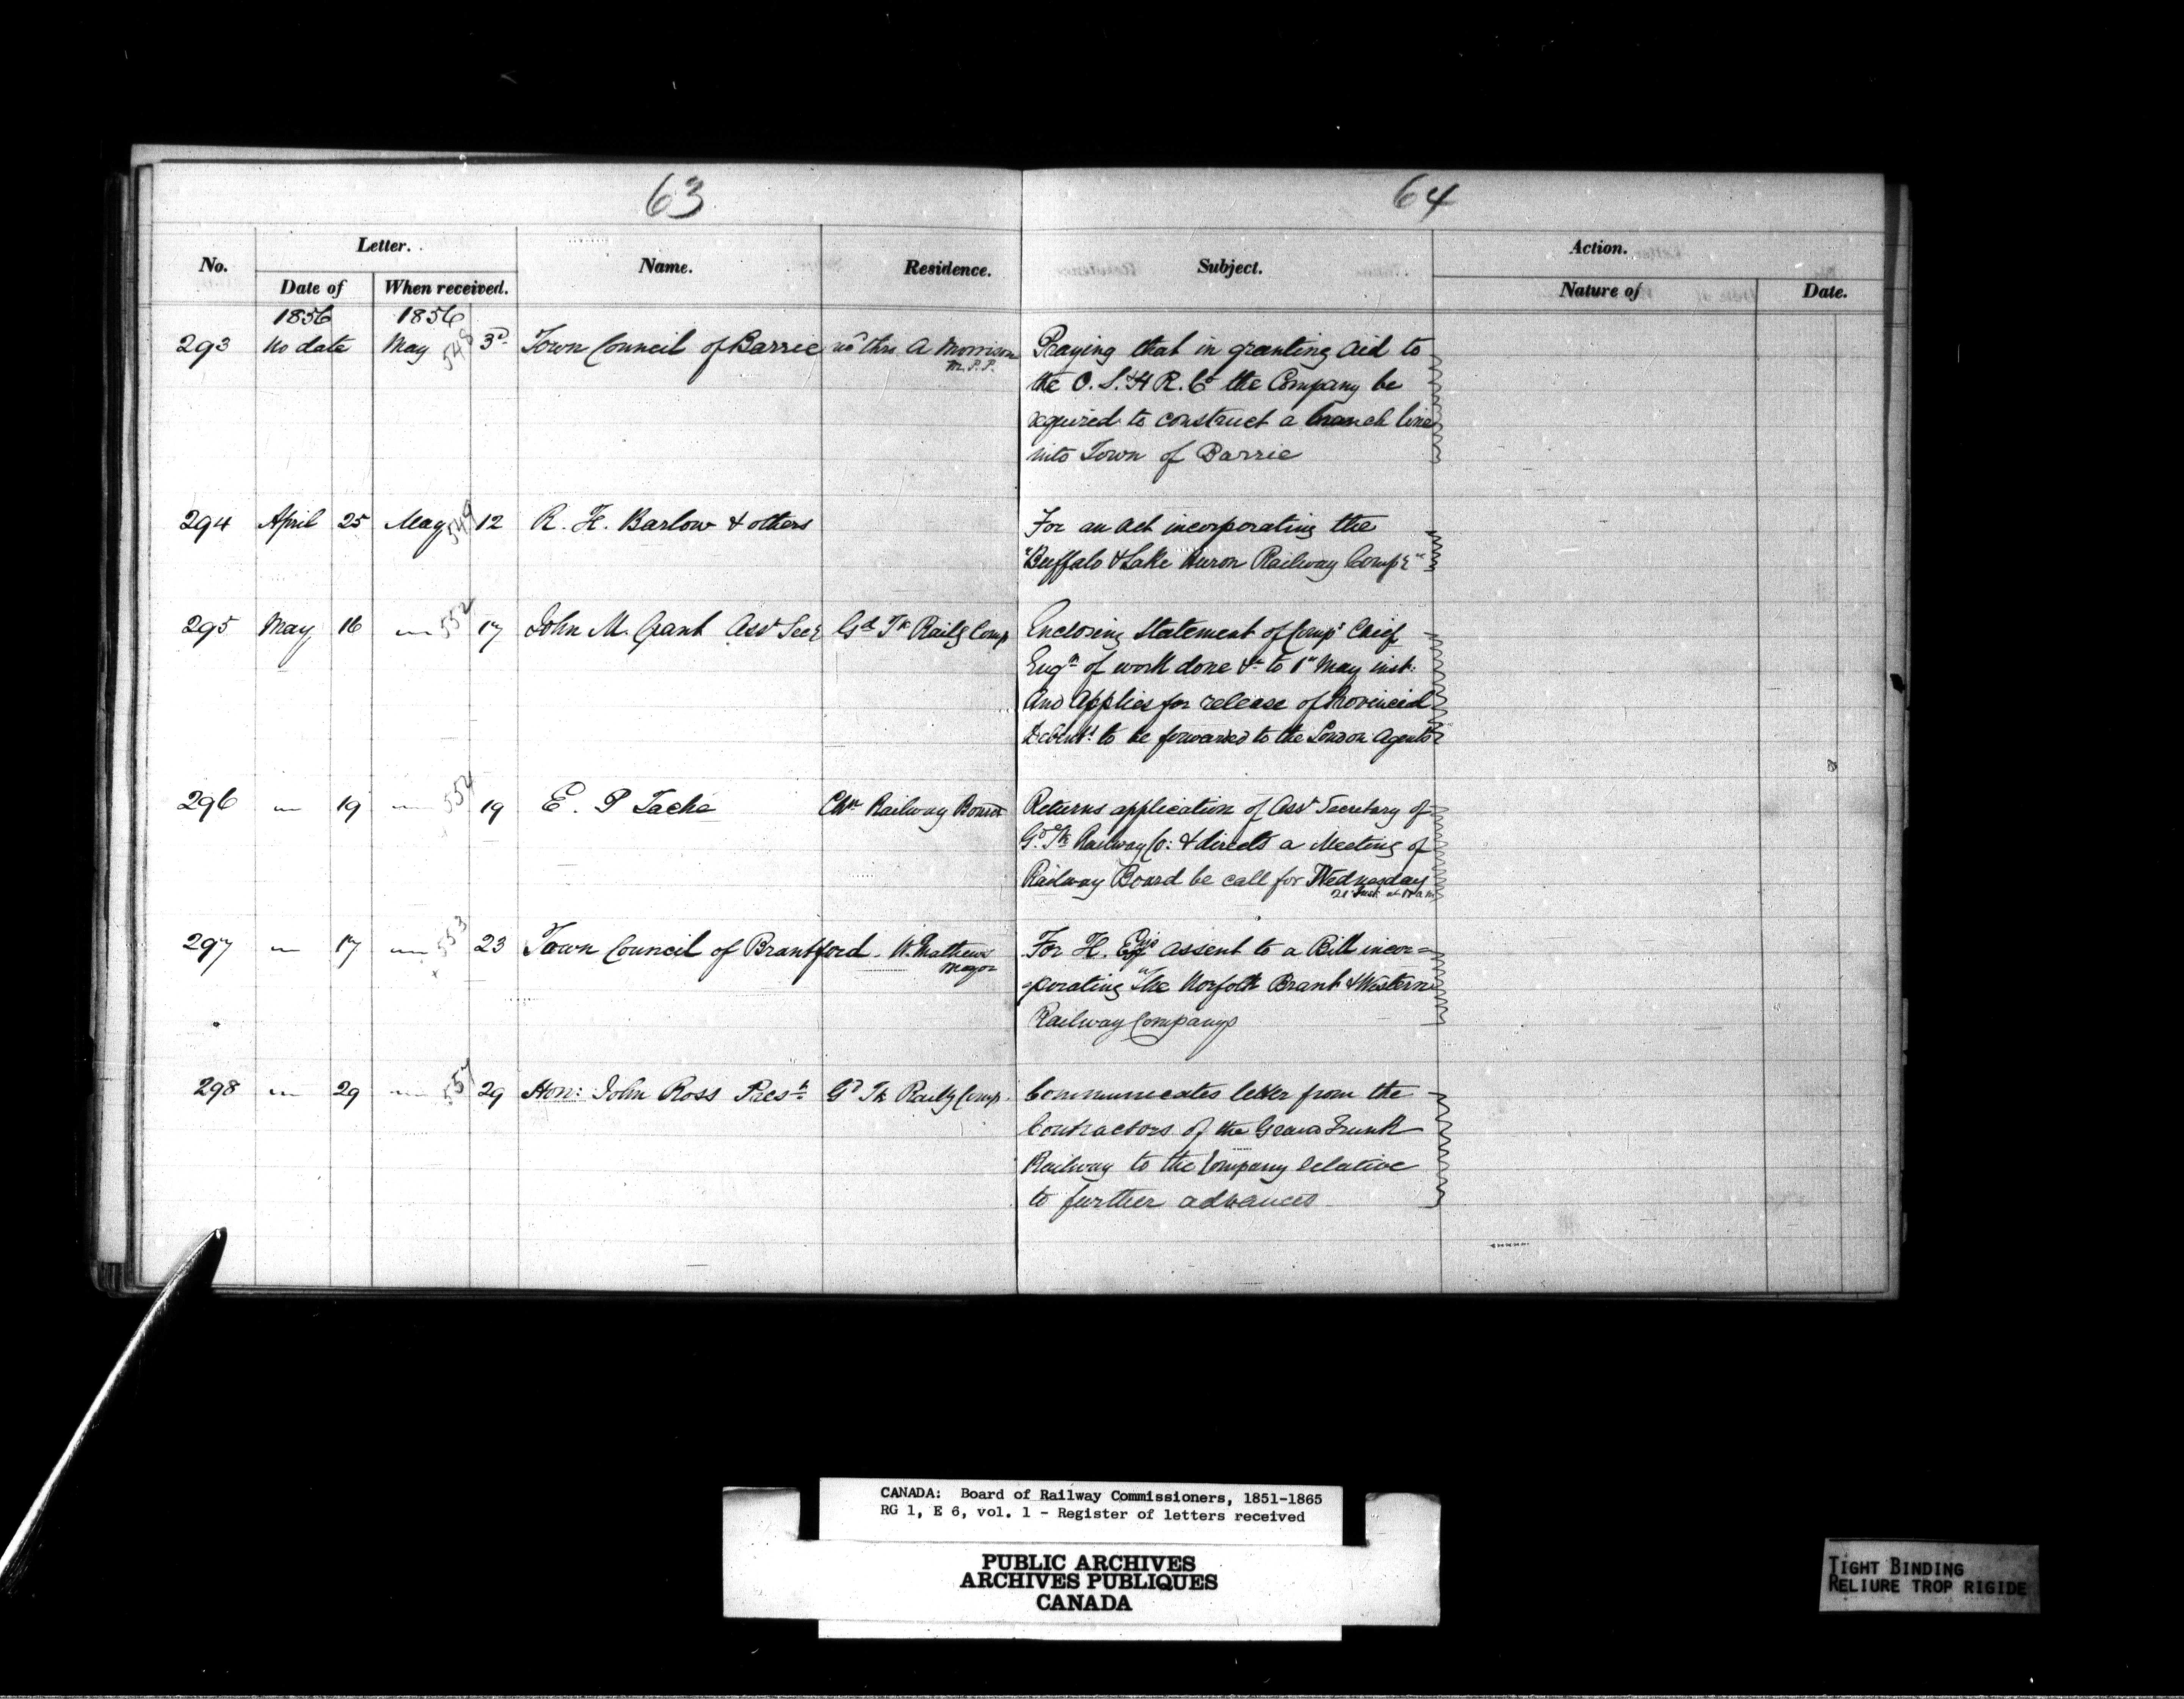 63
64
No.
Letter.
Date of
When received.
Name.
Residence.
Subject.
Action.
Nature of
Date.
1856 1856
293 No date May 548 3d Town Council of Barrie thro A Morrison
M.P.P.
Praying that in granting aid to
the O. S. & H R. Co the Company be
required to construct a branch line
into Town of Barrie
294 April 25 May 549 12 R. H. Barlow & others
For an Act incorporating the
"Buffalo & Lake Huron Railway Compy"
295 May 16 " 552 17 John M. Grant Asst Secy Gd Tk Railg Comp
Enclosing Statement of Comps Chief
Engr of work done &c to 1st May inst.
And Applies for release of Provincial
Debents to be forwarded to the London Agents
296 " 19 " 554 19 E. P Tache Chn Railway Board
Returns application of Asst Secretary of
Gd Tk Railway Co: & directs a Meeting of
Railway Board be call for Wednesday
21 Inst at a m
297 " 17 " 553 23 Town Council of Brantford. W. Mathews
Mayor
For H. Exys assent to a Bill incor=
=porating "The Norfolk Brant & Western
Railway Company"
298 " 29 " 557 29 Hon: John Ross Prest Gd Tk Railg Comp.
Communicates letter from the
Contractors of the Grand Trunk
Railway to the Company relative
to further advances
CANADA: Board of Railway Commissioners, 1851-1865
RG 1, E 6, vol. 1 - Register of letters received
PUBLIC ARCHIVES
ARCHIVES PUBLIQUES
CANADA
TIGHT BINDING
RELIURE TROP RIGIDE